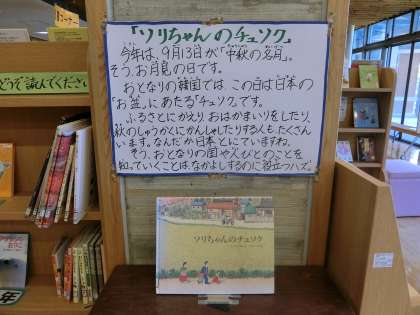 「ソリちゃんのチュソク」
今年は、9月13日が「中秋の名月」。
そう、お月見の日です。
おとなりの韓国では、この日は日本の
「お盆」にあたる「チュソク」です。
ふるさとにかえり、おはかまいりをしたり、
秋のしゅうかくにかんしゃしたりする人も、たくさん
います。なんだか日本とにていますね。
そう、おとなりの国や人びとのことを
知っていくことは、なかよしするのに役立つハズ。
どうぞ読んでください
ソリちゃんのチュソク